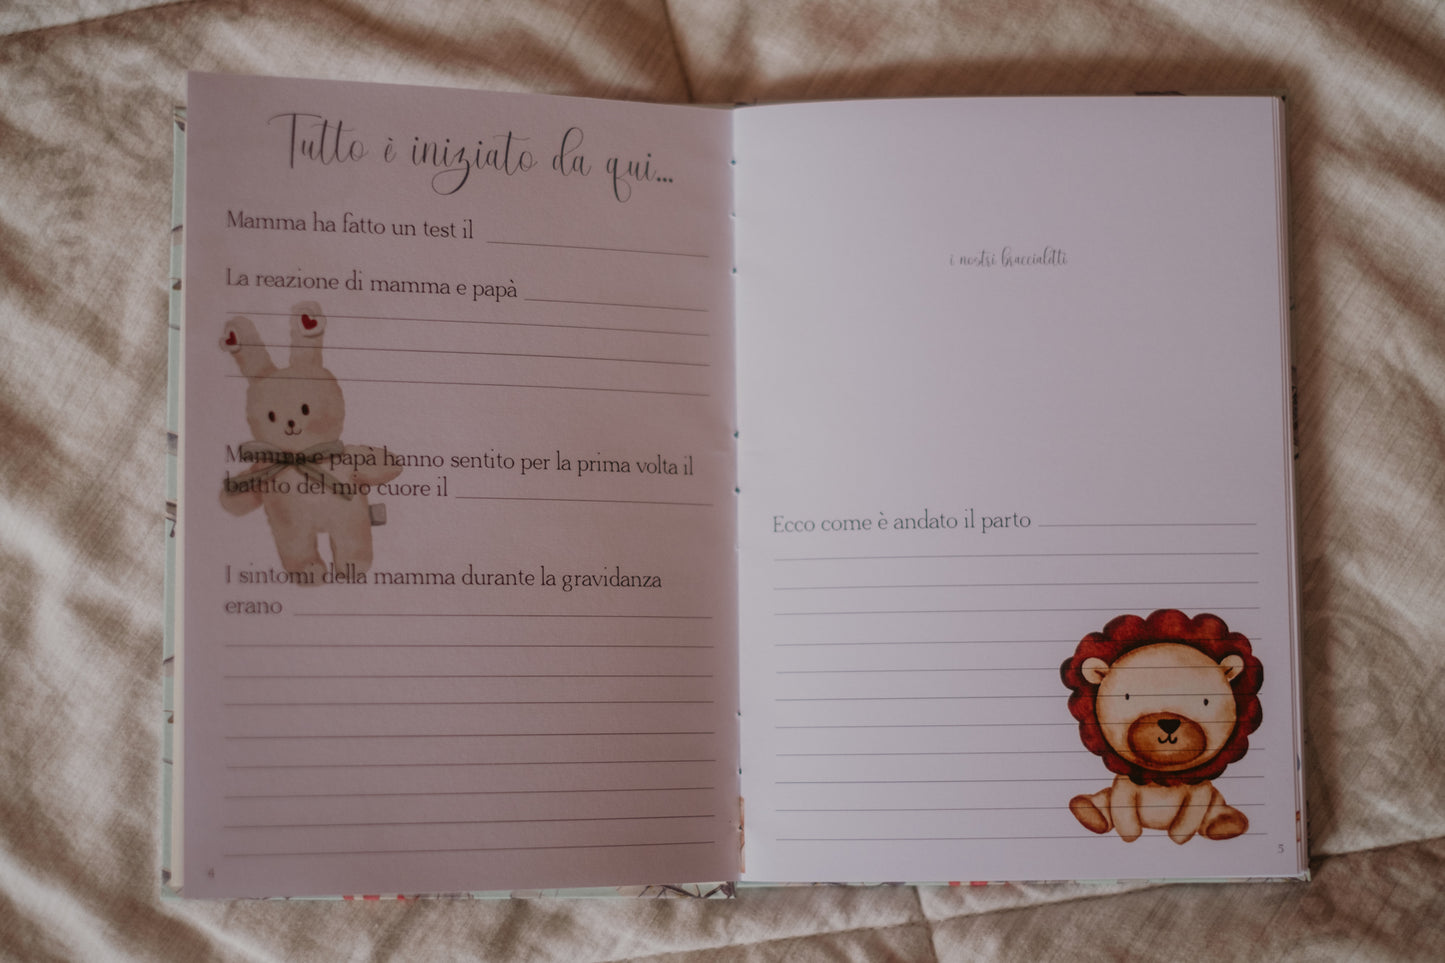 Tutto è iniziato da qui...
Mamma ha fatto un test il
La reazione di mamma e papà
Mamma e papà hanno sentito per la prima volta il
battito del mio cuore il
I sintomi della mamma durante la gravidanza
erano
4
i nostri braccialetti
Ecco come è andato il parto
5